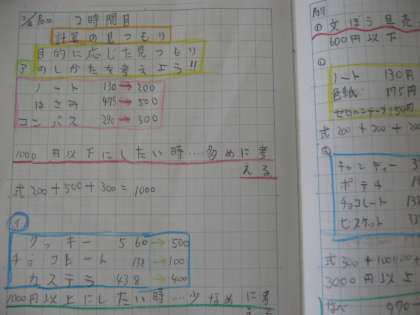 2時間目
計算の見つもり
目的に応じた見つもり
アのしかたを考えよう!!
ノート 130→200
はさみ 475→500
コンパス 290→300
1000円以下にしたい時…多めに考
える
式200+500+300=1000
イ
クッキー 560→500
チョコレート 138→100
カステラ 438→400
1000円以上にしたい時…少なめに考
①文ぼう
600円以下
ノート 130円
色紙 175円
式200+200+
ポテチ
チョコレート
ビスケット
3000円以上